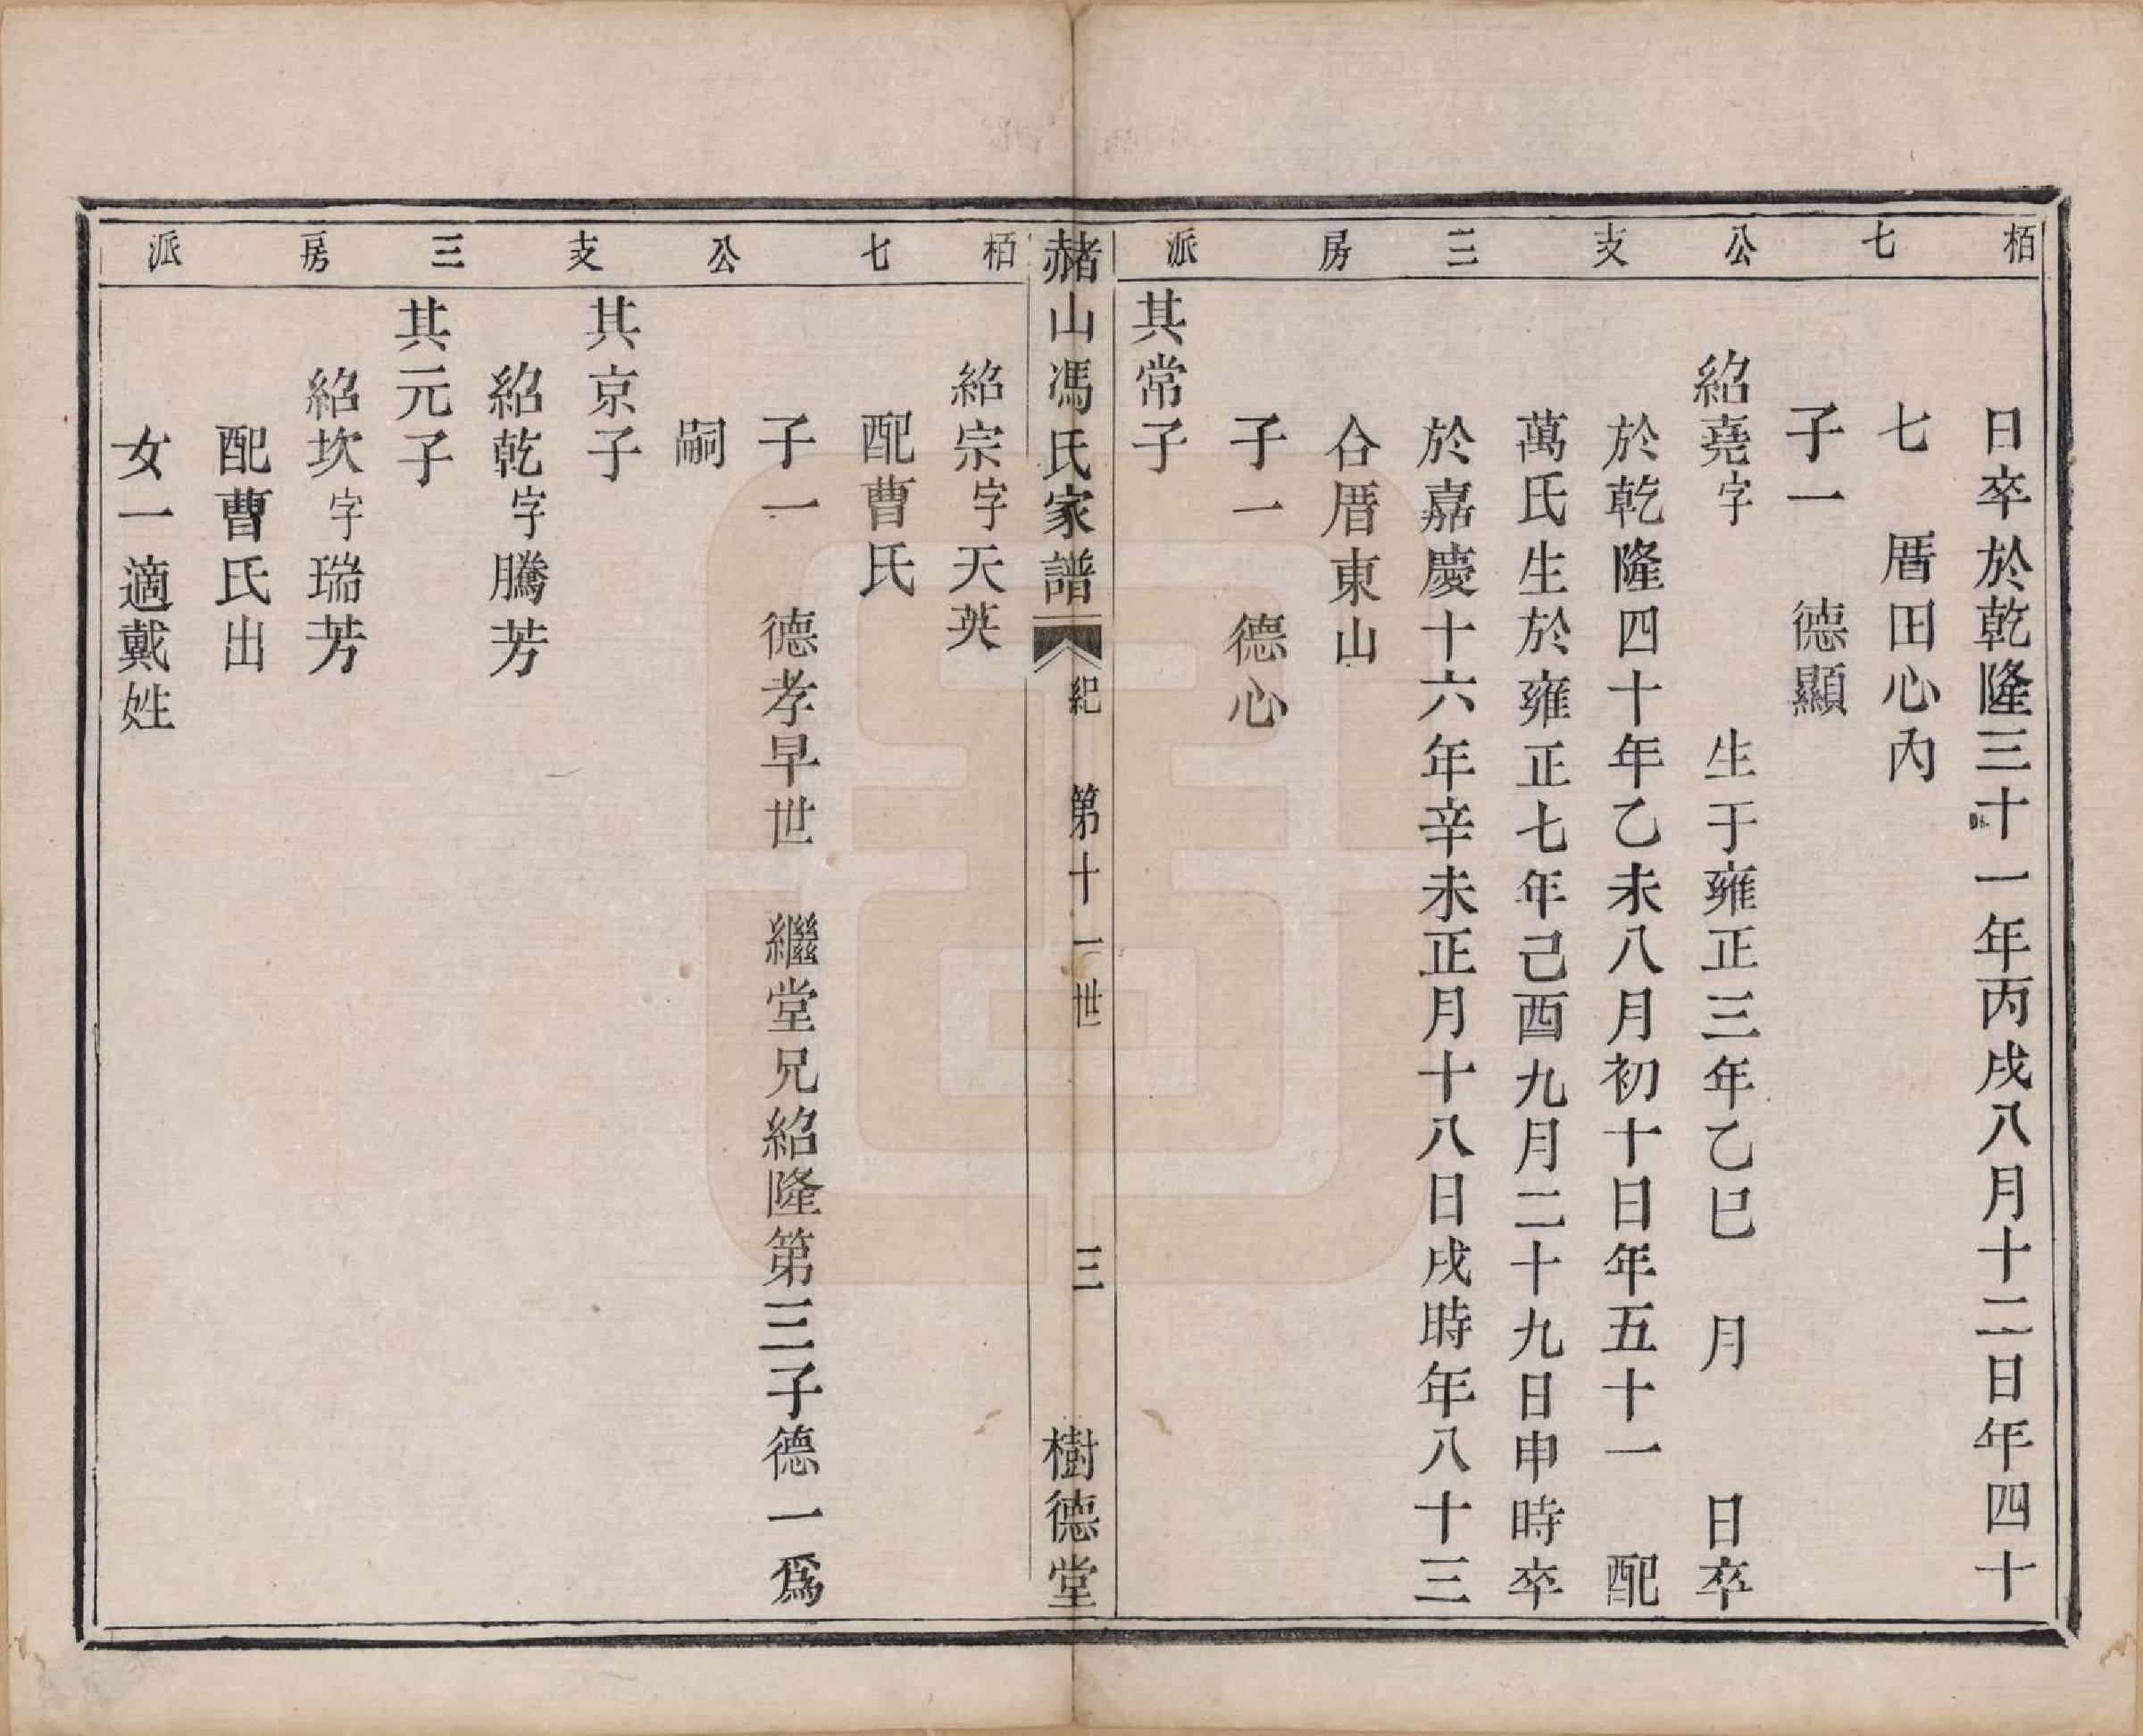 栢七公支三房派
日卒於乾隆三十一年丙戌八月十二日年四十
七　厝田心內
子一　德顯
紹堯字　　　生于雍正三年乙巳　月　日卒
於乾隆四十年乙未八月初十日年五十一　配
萬氏生於雍正七年己酉九月二十九日申時卒
於嘉慶十六年辛未正月十八日戌時年八十三
合厝東山
子一　德心
其常子
赭山馮氏家譜　紀　第十一世　三　樹德堂
栢七公支三房派
紹宗字天英
配曹氏
子一　德孝早世　繼堂兄紹隆第三子德一爲
嗣
其京子
紹乾字騰芳
其元子
紹坎字瑞芳
配曹氏出
女一適戴姓